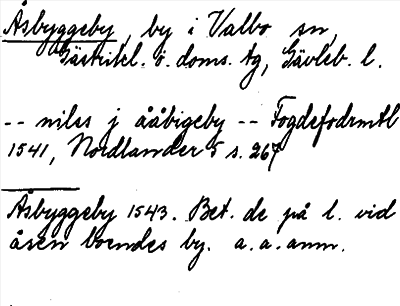 Åsbyggeby, by i Valbo sn,
Gästrikl. ö. doms. tg, Gävleb. l.
-- nilss j ååbigeby -- Fogdefodrmtl
1541, Nordlander 5 s. 267
Åsbyggeby 1543. Bet. de på l. vid
åsen boendes by. a.a. anm.